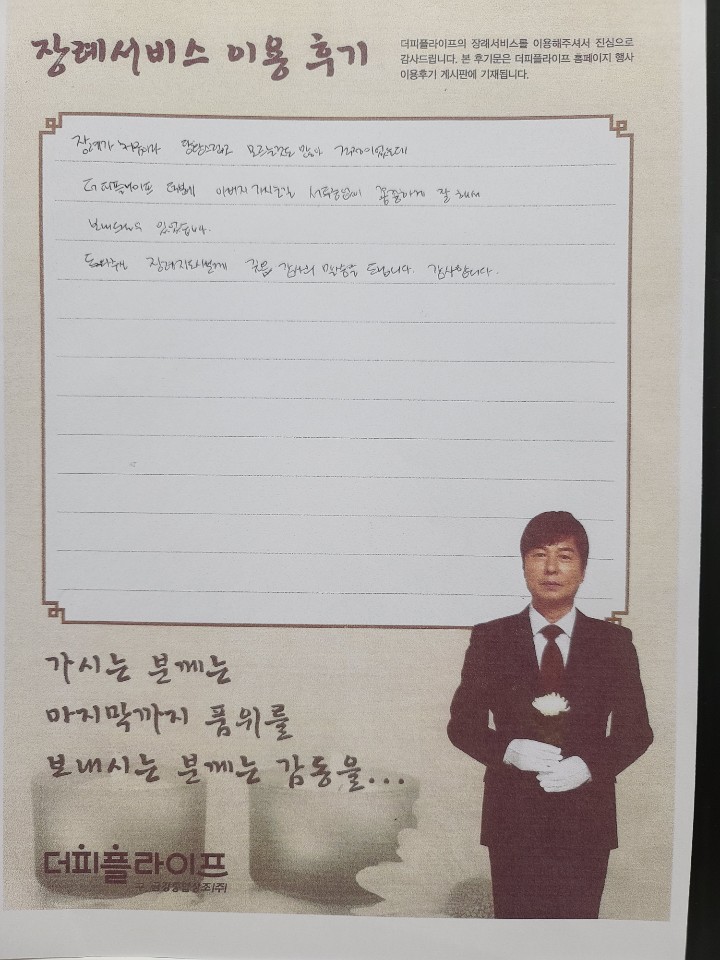 장례서비스 이용 후기
더피플라이프의 장례서비스를 이용해주셔서 진심으로
감사드립니다. 본 후기문은 더피플라이프 홈페이지 행사
이용후기 게시판에 기재됩니다.
장례가 처음이라 당황스럽고 모르는것도 많아 걱정이었는데
더피플라이프 덕분에 아버지 가시는길 서투름없이 꼼꼼하게 잘 해서
보내드릴수 있었습니다.
도와주신 장례지도사분께 깊은 감사의 말씀을 드립니다. 감사합니다.
가시는 분께는
마지막까지 품위를
보내시는 분께는 감동을...
더피플라이프
구. 금강종합상조(주)